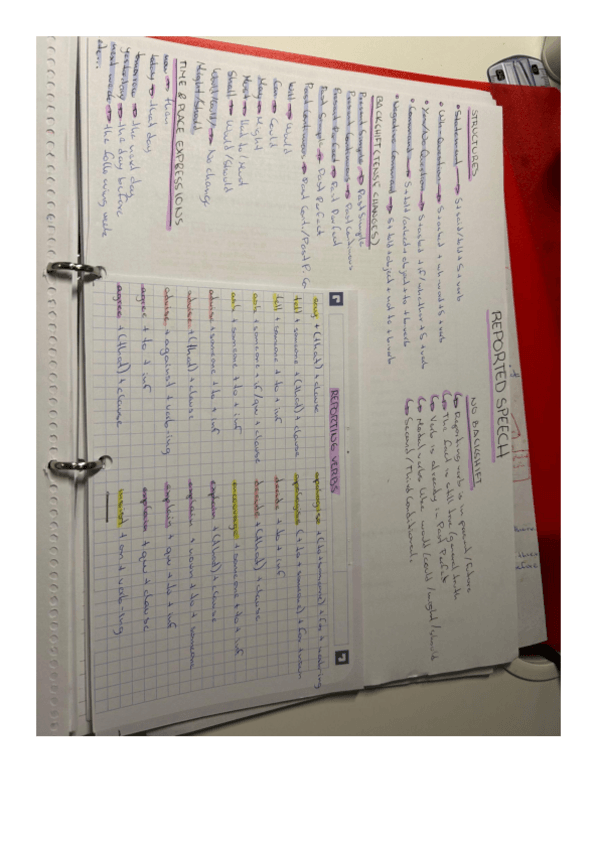 REPORTED SPEECH
STRUCTURES
• Statement → S + said/told + S + verb
• Wh-Questions → S + asked + wh-word + S + verb
• Yes/No Questions → S + asked + if/whether + S + verb
• Commands → S + told/asked + object + to + b.verb
• Negative Command → S + told + object + not to + b.verb
NO BACKSHIFT
↳ Reporting verb is in present/future
↳ The fact is still true/general truth
↳ Verb is already in Past Perfect
↳ Modal verbs like would/could/might/should
↳ Second/Third Conditionals.
BACKSHIFT (TENSE CHANGES)
Present Simple → Past Simple
Present Continuous → Past Continuous
Present Perfect → Past Perfect
Past Simple → Past Perfect
Past Continuous → Past Cont./Past P. Co
Will → Would
Can → Could
May → Might
Must → Had to/Must
Shall → Would/Should
Would/Could/ → No change
Might/Should
TIME & PLACE EXPRESSIONS
now → then
today → that day
tomorrow → the next day
yesterday → the day before
next week → the following week
REPORTING VERBS
say + (that) + clause
tell + someone + (that) + clause
tell + someone + to + inf
ask + someone + if/qu + clause
ask + someone + to + inf
advise + someone + to + inf
advise + (that) + clause
advise + against + verb-ing
agree + to + inf
agree + (that) + clause
apologise + (to + someone) + for +
apologise + (to + someone) + for + noun
decide + to + inf
decide + (that) + clause
encourage + someone + to + inf
explain + (that) + clause
explain + noun + to + someone
explain + qu + to + inf
explain + qu + clause
insist + on + verb-ing